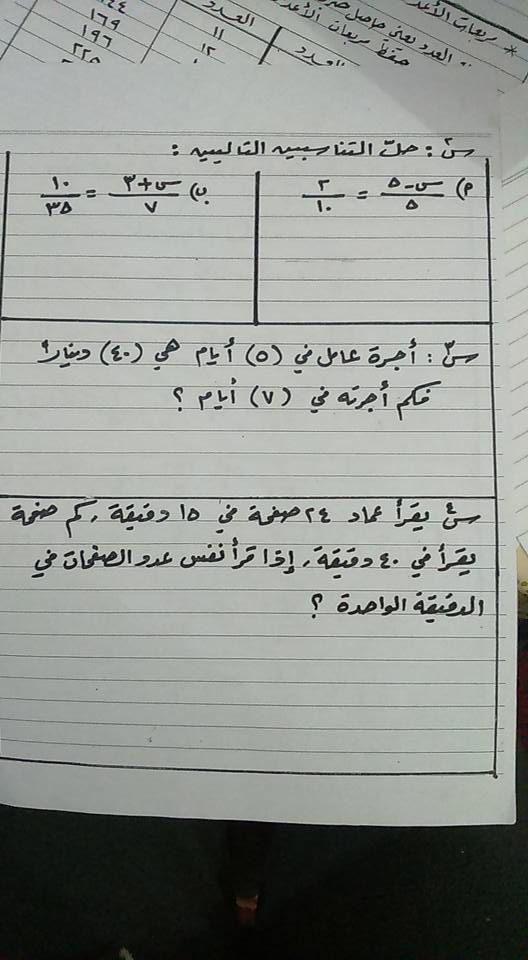 * مربعات الأعد
العدد يعني حاصل ضر
حفظ مربعات الأعد
العدد
١١
١٢
العدد
١٤٤
١٦٩
١٩٦
٢٢٥
س٢ : حلّ التناسبين التاليين :
أ) س-٥/٥ = ٢/١٠
ب) س+٣/٧ = ١٠/٣٥
س٣ : أجرة عامل في (٥) أيام هي (٤٠) ديناراً
فكم أجرته في (٧) أيام ؟
س٤ يقرأ عماد ٢٤ صفحة في ١٥ دقيقة , كم صفحة
يقرأ في ٤٠ دقيقة , إذا قرأ نفس عدد الصفحات في
الدقيقة الواحدة ؟